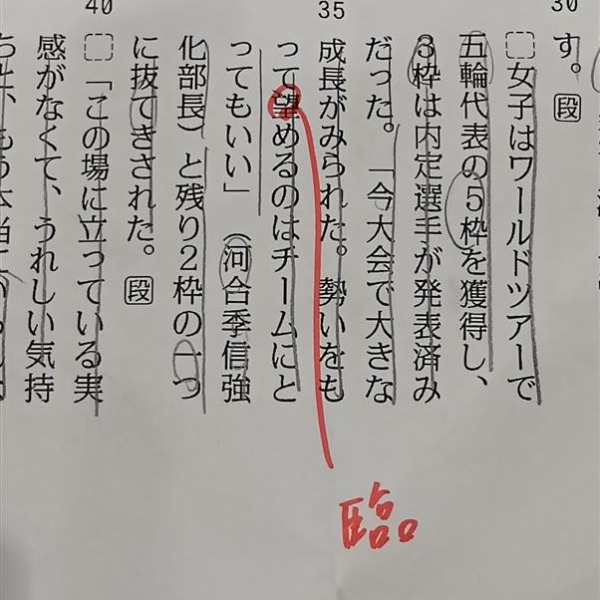 30
す。段
女子はワールドツアーで
五輪代表の5枠を獲得し、
3枠は内定選手が発表済み
だった。「今大会で大きな
35
成長がみられた。勢いをも
って望めるのはチームにと
ってもいい」（河合季信強
化部長）と残り2枠の一つ
に抜てきされた。段
40
「この場に立っている実
感がなくて、うれしい気持
臨